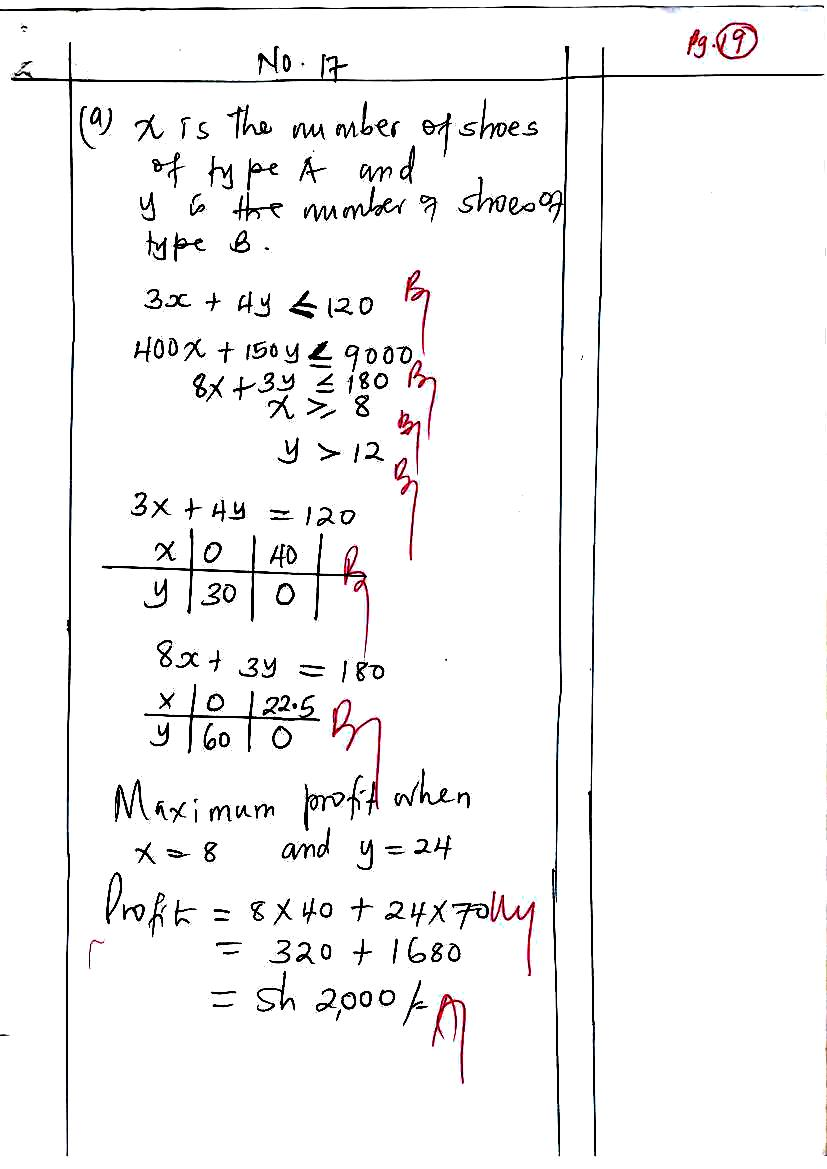 Pg. 19
No. 17
(a) x is the number of shoes
of type A and
y is the number of shoes of
type B.
3x + 4y ≤ 120 B1
400x + 150y ≤ 9000
8x + 3y ≤ 180 B1
x ≥ 8 B1
y > 12 B1
3x + 4y = 120
x | 0 | 40 |
y | 30 | 0 | B1
8x + 3y = 180
x | 0 | 22.5
y | 60 | 0 B1
Maximum profit when
x = 8 and y = 24
Profit = 8 x 40 + 24 x 70 M1
= 320 + 1680
= Sh 2,000/= A1